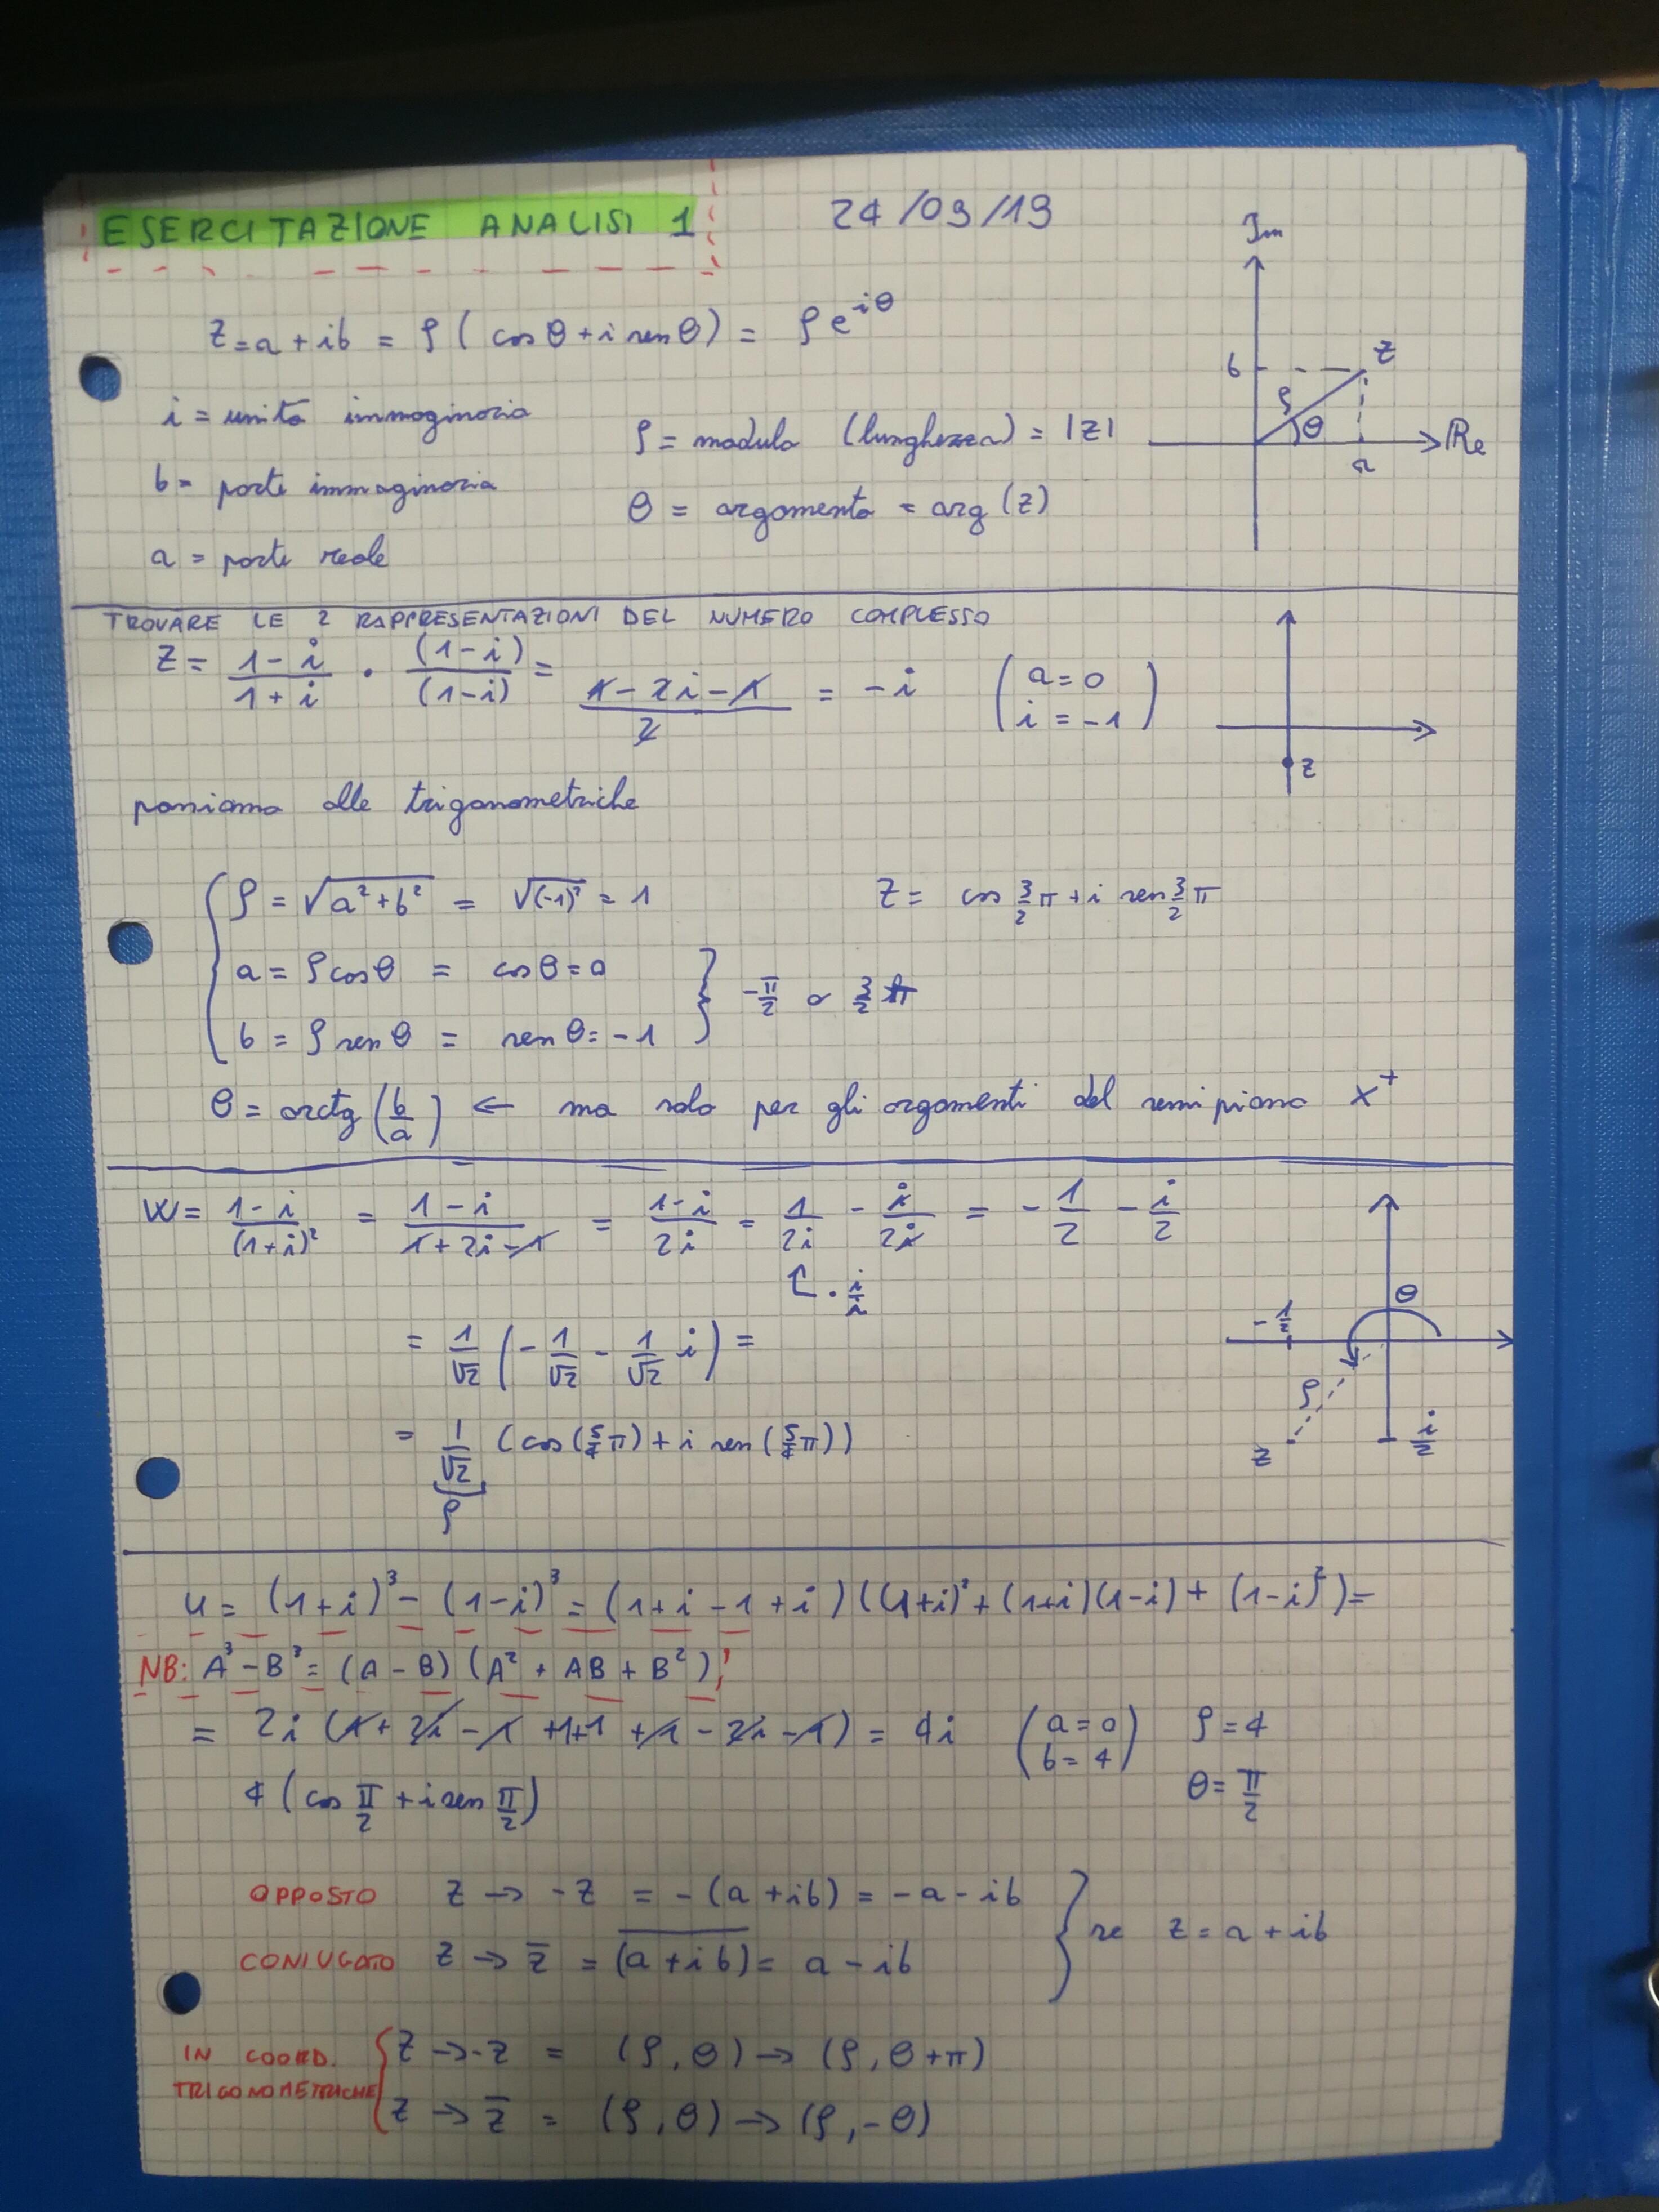 ESERCITAZIONE ANALISI 1 24/09/19
z = a + ib = ρ ( cos θ + i sen θ ) = ρ e^{iθ}
i = unità immaginaria
b = parte immaginaria
a = parte reale
ρ = modulo (lunghezza) = |z|
θ = argomento = arg (z)
Im
b
z
ρ
θ
a
Re
TROVARE LE 2 RAPPRESENTAZIONI DEL NUMERO COMPLESSO
z = (1 - i)/(1 + i) · (1 - i)/(1 - i) = (1 - 2i - 1)/2 = -i (a = 0
i = -1)
z
passiamo alle trigonometriche
ρ = √(a² + b²) = √(-1)² = 1 z = cos 3/2 π + i sen 3/2 π
a = ρ cos θ = cos θ = 0
b = ρ sen θ = sen θ = -1
} -π/2 o 3/2 π
θ = arctg (b/a) ← ma solo per gli argomenti del semipiano x⁺
W = (1 - i)/(1 + i)² = (1 - i)/(1 + 2i - 1) = (1 - i)/2i = 1/2i - i/2i = -1/2 - i/2
· i/i
= 1/√2 (-1/√2 - 1/√2 i) =
= 1/√2 (cos (5/4 π) + i sen (5/4 π))
ρ
θ
-1/2
ρ
z
i/2
u = (1 + i)³ - (1 - i)³ = (1 + i - 1 + i) ((1 + i)² + (1 + i)(1 - i) + (1 - i)²) =
NB: A³ - B³ = (A - B) (A² + AB + B²)
= 2i (1 + 2i - 1 + 1 + 1 + 1 - 2i - 1) = 4i (a = 0
b = 4) ρ = 4
θ = π/2
4 (cos π/2 + i sen π/2)
OPPOSTO z → -z = -(a + ib) = -a - ib
CONIUGATO z → z̅ = \overline{(a + ib)} = a - ib
} se z = a + ib
IN COORD. TRIGONOMETRICHE
{ z → -z = (ρ, θ) → (ρ, θ + π)
z → z̅ = (ρ, θ) → (ρ, -θ)